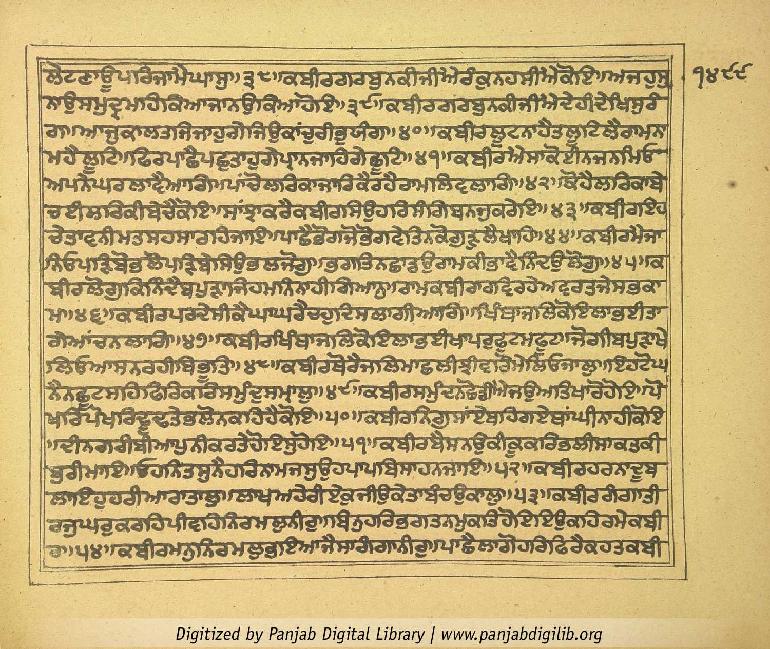 ਲੇਟਣਾਊਪਰਿਜਾਮੈਘਾਸੁ॥੩੮॥ਕਬੀਰਗਰਬੁਨਕੀਜੀਐਰੰਕੁਨਹਸੀਐਕੋਇ॥ਅਜਹੁਸੁ
ਨਾਉਸਮੁਦ੍ਰਮਾਹਿਕਿਆਜਾਨਉਕਿਆਹੋਇ॥੩੯॥ਕਬੀਰਗਰਬੁਨਕੀਜੀਐਦੇਹੀਦੇਖਿਸੁਰੰ
ਗ॥ਆਜੁਕਾਲਤਜਿਜਾਹੁਗੇਜਿਉਕਾਂਚੁਰੀਭੁਯੰਗ॥੪੦॥ਕਬੀਰਲੂਟਨਾਹੈਤਲੂਟਿਲੈਰਾਮਨਾ
ਮਹੈਲੂਟਿ॥ਫਿਰਪਾਛੈਪਛੁਤਾਹੁਗੇਪ੍ਰਾਨਜਾਹਿਗੇਛੂਟਿ॥੪੧॥ਕਬੀਰਐਸਾਕੋਈਨਜਨਮਿਓ
ਅਪਨੈਘਰਲਾਵੈਆਗਿ॥ਪਾਂਚੋਲਰਿਕਾਜਾਰਿਕੈਰਹੈਰਾਮਲਿਵਲਾਗਿ॥੪੨॥ਕੋਹੈਲਰਿਕਾਬੇ
ਚਈਲਰਿਕੀਬੇਚੈਕੋਇ॥ਸਾਂਝਾਕਰੈਕਬੀਰਸਿਉਹਰਿਸੰਗਿਬਨਜੁਕਰੇਇ॥੪੩॥ਕਬੀਰਇਹ
ਚੇਤਾਵਨੀਮਤਸਹਸਾਰਹਿਜਾਇ॥ਪਾਛੈਭੋਗਜੋਭੋਗਵੇਤਿਨਕੋਗੁੜੁਲੈਖਾਹਿ॥੪੪॥ਕਬੀਰਮੈਜਾ
ਨਿਓਪੜਿਬੋਭਲੋਪੜਿਬੇਸਿਉਭਲਜੋਗੁ॥ਭਗਤਿਨਛਾਡਉਰਾਮਕੀਭਾਵੈਨਿੰਦਉਲੋਗੁ॥੪੫॥ਕ
ਬੀਰਲੋਗੁਕਿਨਿੰਦੈਬਪੁੜਾਜਿਹਮਨਿਨਾਹੀਗਿਆਨੁ॥ਰਾਮਕਬੀਰਾਰਵਿਰਹੇਅਵਰਤਜੇਸਭਕਾ
ਮ॥੪੬॥ਕਬੀਰਪਰਦੇਸੀਕੈਘਾਘਰੈਚਹੁਦਿਸਲਾਗੀਆਗਿ॥ਖਿੰਥਾਜਲਿਕੋਇਲਾਭਈਤਾ
ਗੇਆਂਚਨਲਾਗ॥੪੭॥ਕਬੀਰਖਿੰਥਾਜਲਿਕੋਇਲਾਭਈਖਾਪਰੁਫੂਟਮਫੂਟ॥ਜੋਗੀਬਪੁੜਾਖੇ
ਲਿਓਆਸਨਰਹੀਬਿਭੂਤਿ॥੪੮॥ਕਬੀਰਥੋਰੈਜਲਿਮਾਛਲੀਝੀਵਰਿਮੇਲਿਓਜਾਲੁ॥ਇਹਟੋਘ
ਨੈਨਛੂਟਸਹਿਫਿਰਿਕਰਿਸਮੁੰਦੁਸਮ੍ਹਾਲੁ॥੪੯॥ਕਬੀਰਸਮੁੰਦਨਛੋਡੀਐਜਉਅਤਿਖਾਰੋਹੋਇ॥ਪੋ
ਖਰਿਪੋਖਰਿਢੂਢਤੇਭਲੋਨਕਹਿਹੈਕੋਇ॥੫੦॥ਕਬੀਰਨਿਗੁਸਾਂਏਂਬਹਿਗਏਥਾਂਘੀਨਾਹੀਕੋਇ
॥ਦੀਨਗਰੀਬੀਆਪੁਨੀਕਰਤੇਹੋਇਸੁਹੋਇ॥੫੧॥ਕਬੀਰਬੈਸਨਉਕੀਕੂਕਰਿਭਲੀਸਾਕਤਕੀ
ਬੁਰੀਮਾਇ॥ਓਹਨਿਤਸੁਨੈਹਰਿਨਾਮਜਸੁਉਹਪਾਪਬਿਸਾਹਨਜਾਇ॥੫੨॥ਕਬੀਰਹਰਨਾਦੂਬ
ਲਾਇਹੁਹਰੀਆਰਾਤਾਲੁ॥ਲਾਖਅਹੇਰੀਏਕੁਜੀਉਕੇਤਾਬੰਚਉਕਾਲੁ॥੫੩॥ਕਬੀਰਗੰਗਾਤੀ
ਰਜੁਘਰੁਕਰਹਿਪੀਵਹਿਨਿਰਮਲਨੀਰੁ॥ਬਿਨੁਹਰਿਭਗਤਨਮੁਕਤਿਹੋਇਇਉਕਹਿਰਮੇਕਬੀ
ਰ॥੫੪॥ਕਬੀਰਮਨੁਨਿਰਮਲੁਭਇਆਜੈਸਾਗੰਗਾਨੀਰੁ॥ਪਾਛੈਲਾਗੋਹਰਿਫਿਰੈਕਹਤਕਬੀ
੧੪੯੯
Digitized by Panjab Digital Library | www.panjabdigilib.org